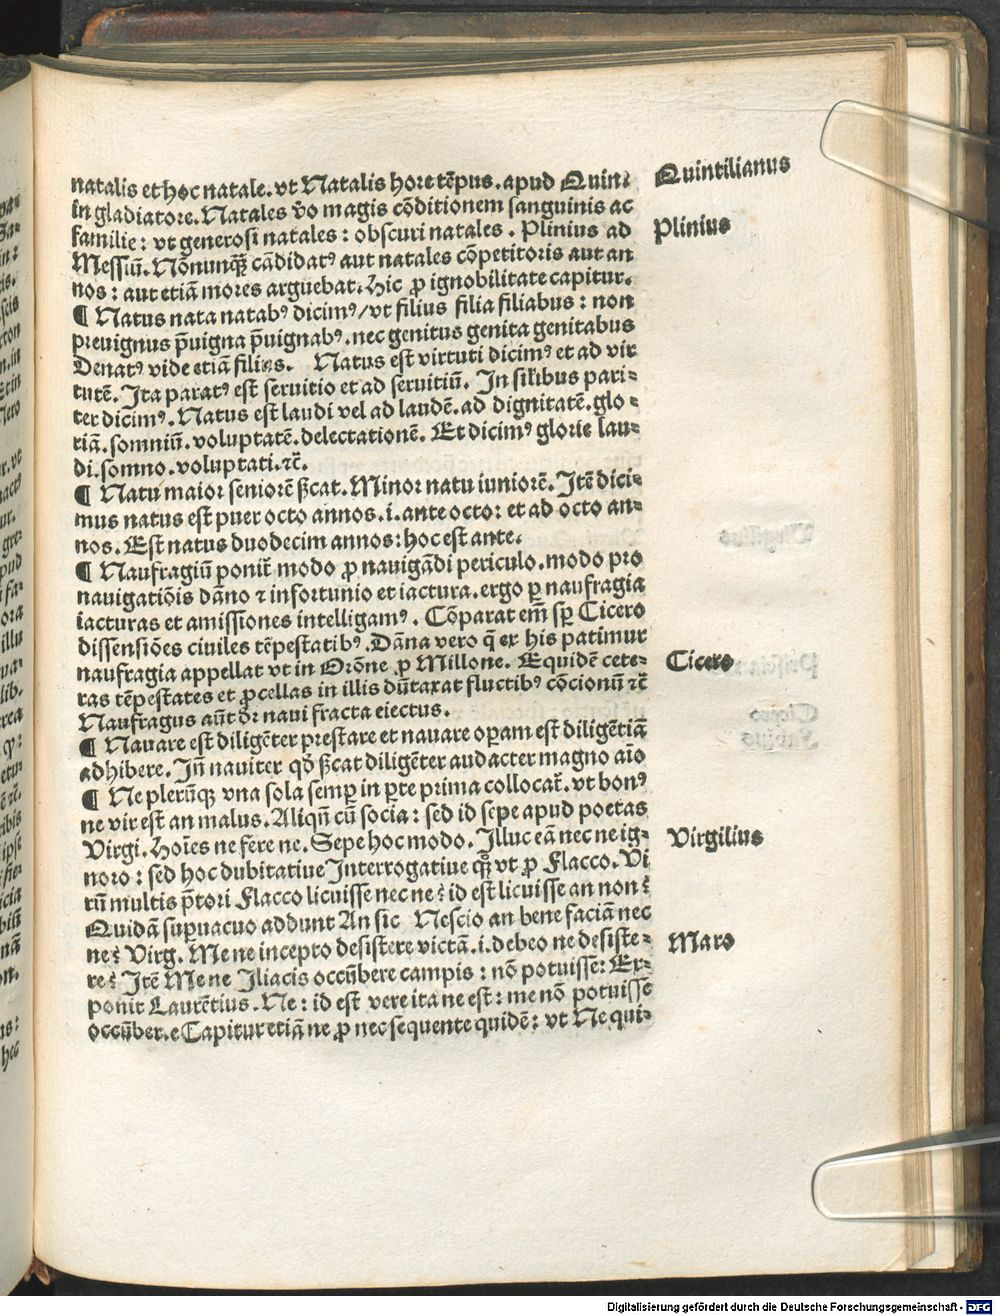 natalis et hoc natale. vt Natalis hore tēpus. apud Quin⸗
Quintilianus
in gladiatore. Natales v̄o magis cōditionem sanguinis ac
familie: vt generosi natales: obscuri natales. Plinius ad
Plinius
Messiū. Nōnunqꝫ cādidatꝰ aut natales cōpetitoris aut an
nos: aut etiā mores arguebat. Hic ꝓ ignobilitate capitur.
¶ Natus nata natabꝰ dicimꝰ/ vt filius filia filiabus: non
preuignus p̄uigna p̄uignabꝰ. nec genitus genita genitabus
Denatꝰ vide etiā filios. Natus est virtuti dicimꝰ et ad vir
tutē. Ita paratꝰ est seruitio et ad seruitiū. In silibus pari⸗
ter dicimꝰ. Natus est laudi vel ad laudē. ad dignitatē. glo⸗
riā. somniū. voluptatē. delectationē. Et dicimꝰ glorie lau⸗
di. somno. voluptati. ꝛc̄.
¶ Natu maior seniorē ſ̄cat. Minor natu iuniorē. Itē dici⸗
mus natus est puer octo annos. i. ante octo: et ad octo an⸗
nos. Est natus duodecim annos: hoc est ante.
¶ Naufragiū ponit̄ modo ꝓ nauigādi periculo. modo pro
nauigatiōis dāno ⁊ infortunio et iactura. ergo ꝑ naufragia
iacturas et amissiones intelligamꝰ. Cōparat em̄ sꝑ Cicero
dissensiōes ciuiles tēpestatibꝰ. Dāna vero q̄ ex his patimur
naufragia appellat vt in Orōne ꝓ Millone. Equidē cete⸗
Cicero
ras tēpestates et ꝓcellas in illis dūtaxat fluctibꝰ cōcionū ꝛc̄
Naufragus aūt dr̄ naui fracta eiectus.
¶ Nauare est diligēter prestare et nauare oꝑam est diligētiā
adhibere. Inn̄ nauiter qd̄ ſ̄cat diligēter audacter magno aīo
¶ Ne plerūqꝫ vna sola semꝑ in ꝑte prima collocat̄. vt bonꝰ
ne vir est an malus. Aliqn̄ cū socia: sed id sepe apud poetas
Virgi. Hoīes ne fere ne. Sepe hoc modo. Illuc eā nec ne ig⸗
Virgilius
noro: sed hoc dubitatiue Interrogatiue qꝫ vt ꝓ Flacco. Vi
rū multis p̄tori Flacco licuisse nec ne? id est licuisse an non?
Quidā suꝑuacuo addunt An sic Nescio an bene faciā nec
ne? Virg. Me ne incepto desistere victā. i. debeo ne desiste⸗
Maro
re? Itē Me ne Iliacis occūbere campis: nō potuisse: Ex⸗
ponit Laurētius. Ne: id est vere ita ne est: me nō potuisse
occūber. e Capitur etiā ne ꝓ nec sequente quidē: vt Ne qui⸗
Digitalisierung gefördert durch die Deutsche Forschungsgemeinschaft - DFG